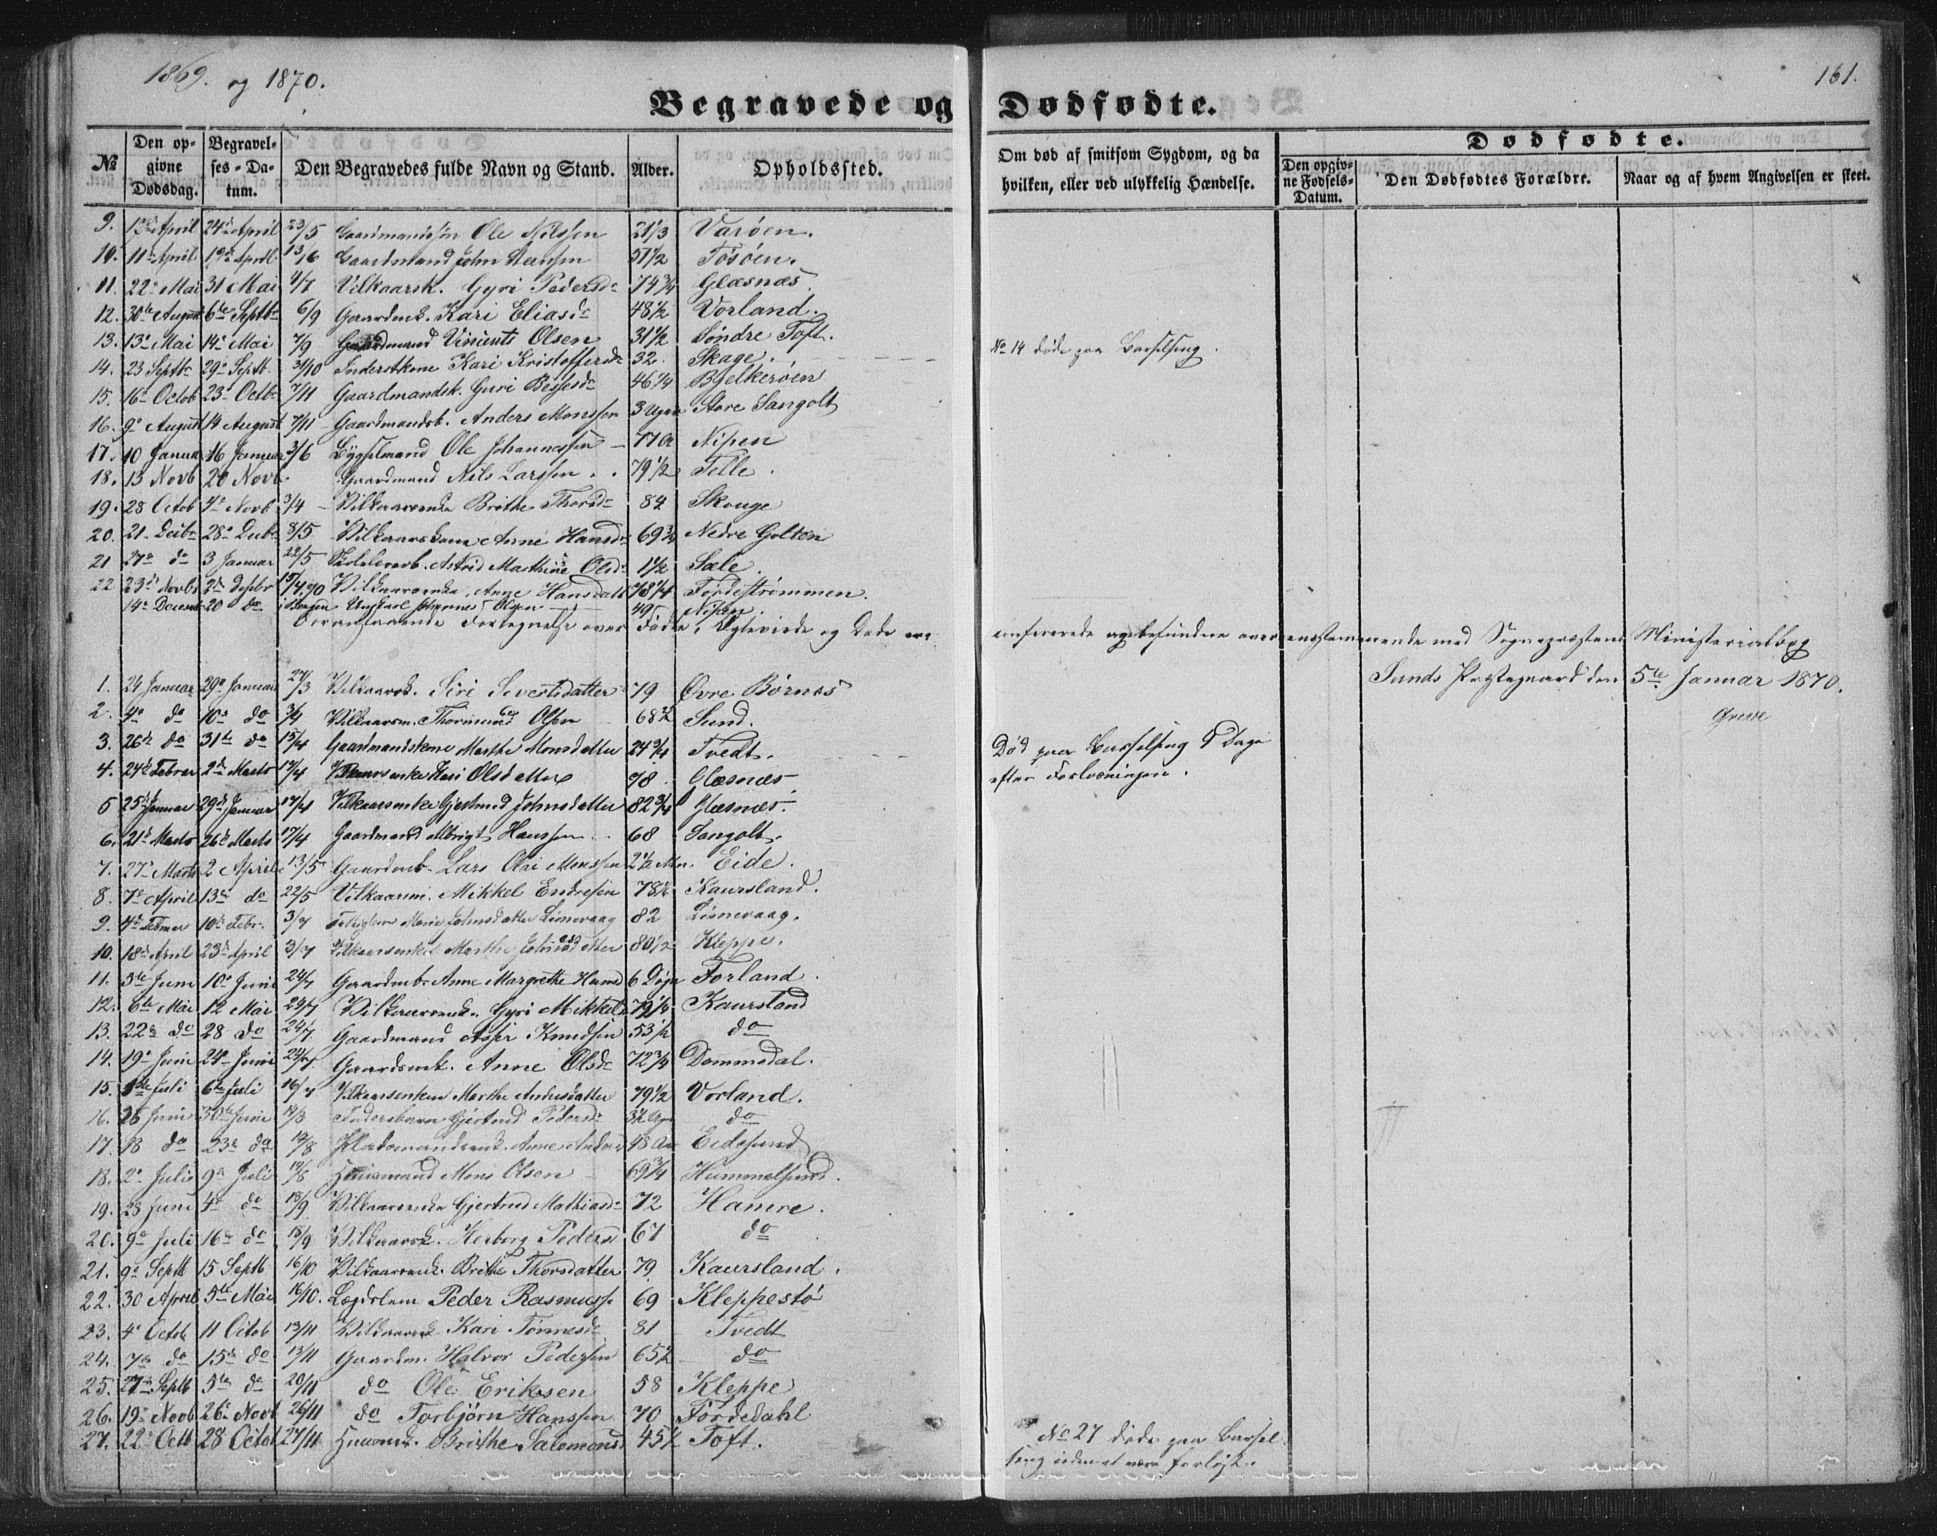 1869. og 1870.
161.
Begravede og Dødfødte.
№
Den opgivne Dødsdag.
Begravelses-Datum.
Den Begravedes fulde Navn og Stand.
Alder.
Opholdssted.
Om død af smitsom Sygdom, og da hvilken, eller ved ulykkelig Hændelse.
Dødfødte.
Den opgivne Fødsels-Datum.
Den Dødfødtes Forældre.
Naar og af hvem Angivelsen er skeet.
9. April 24de April 23/5 Gaardmandssøn Ole Nilssen 21/3 Varøen.
10. 11de April 19de April 13/6 Gaardmand John Hansen 51 1/2 Tosøen.
11. 22de Mai 31 Mai 4/7 Vilkaarsk. Gyri Pedersd. 74 3/4 Glæsnæs.
12. 30te August 6te Septbr 6/9 Gaardmk. Kari Eliasd. 48 1/2 Vorland.
13. 13de Mai 14de Mai 7/9 Gaardmand Vincents Olsen 31 1/2 Søndre Toft.
14. 23 Septbr 29de Septb. 3/10 Inderstkone Kari Kristoffersd. 32. Skage. No 14 døde paa Barselseng.
15. 16de Octob 23de Octb. 7/11 Gaardmandsk. Guri Bessesd. 46 1/4 Bjelkerøen
16. 9de August 14 August 7/11 Gaardmandsb. Anders Monssen 3 Uger Store Sangolt
17. 10 Januar 16 Januar 3/6 Bygselmand Ole Johannessen 77 Nipen
18. 13 Novb 20 Novb. Gaardmand Nils Larssen 79 1/2 Telle.
19. 28 Octob 4de Novb 3/4 Vilkaarsenke Brithe Thorsd. 84 Skouge
20. 21 28de 8/5 Vilkaarskone Anne Hansd. 69 3/4 Nedre Golten
21 27de do 3 Januar 22/5 Astrid Marthine Olsd. 1 1/2 Sæle.
22 23de Novb 2de Desbr Vilkaarsenke, Anne Hansdatt 73 1/4 Førdestrømmen.
14de Decem 20 do i Bergen Ungkarl Olsen 49 Nipen.
Foranstaaende Fortegnelse over Fødte, Egteviede og Døde ere conferérede og befundne overensstemmende med Sognepræstens Ministerialbog
Sunds Præstegaard den 5te Januar 1870.
Greve
1. 24 Januar 29de Januar 27/3 Vilkaarsk. Siri Sivertsdatter 79 Øvre Børnæs
2. 4de do 10de do 3/4 Vilkaarsm. Thormund Olsen 68 1/2 Sund.
3. 26de do 31te do 15/4 Gaardmandskone Marthe Monsdatter 24 3/4 Tvedt. Død paa Barselseng 9 Dage efter Forløsningen.
4. 24de Febrer 2de Marts 17/4 Vilkaarsenke Kari Olsdatter 78 Glæsnæs
5 25de Januar 29de Januar 17/4 Vilkaarsenke Gjertrud Johnsdatter 82 3/4 Glæsnæs.
6. 21de Marts 26de Marts 17/4 Gaardmand Albrigt Hanssen 68 Sangolt.
7. 27de Marts 2 April 13/5 Gaardmb. Lars Olai Monssen 2 1/2 Mn. Eide.
8. 7de April 13de do 22/5 Vilkaarm. Mikkel Endresen 78 1/2 Kaursland.
9. 4de Februar 10de Febr. 3/7 Marie Johnsdatter Limevaag 82 Limevaag.
10. 18de April 23de April 3/7 Vilkaarsenke Marthe 80 1/2 Kleppe.
11. 3te Juni 10de Juni 24/7 Gaardmb. Anne Margrethe Hansd 6 Døgn Forland.
12. 6te Mai 12 Mai 24/7 Vilkaarsenk. Gyri Mikkels 79 1/2 Kaursland
13. 22de do 28 do 24/7. Gaardmand Asser Knudsen 53 1/2 do
14. 19de Juni 24de Juni 24/7. Gaardmk. Anne Olsd. 72 3/4 Dommedal.
15. 1ste Juli 6te Juli 16/7 Vilkaarsenken Marthe Andersdatter 79 1/2 Vorland.
16. 26 Juni 30te Juni 14/8 Indersbarn Gjertrud Pedersd. do
17. 18 do 23de do 14/8 Anne 48 Aar Eidesund
18. 2de Juli 9de Juli 14/8 Huusmand Mons Olsen 69 3/4 Hummelsund.
19. 28 Juni 4de do 18/9 Vilkaarsenke Gjertrud Mathiasd. 72 Hamre.
20. 9de Juli 16de do 18/9 Vilkaarsk. Herborg Pedersd 67 do
21. 9de Septb 15 Septb 16/10 Vilkaarsenk. Brithe Thorsdatter 79. Kaursland.
22. 30 April 5te Mai 16/10. Lægdslem Peder Rasmuss. 69 Kleppestø
23. 4de Octob 11 Octob 13/11 Vilkaarsenk Kari Tønnesd. 81 Tvedt
24. 7de do 15de do 13/11 Gaardm. Halvor Pedersen 65 1/2 do
25. 27de Septb 5te do 20/11 do Ole Eriksen 58 Kleppe
26. 19de Novb 26de Novb 26/11 do Torbjørn Hanssen 70 Førdedahl
27. 22de Octb 28 Octob 27/11 Huusmk. Brithe Salomonsd 45 1/2 Toft. No 27 døde paa Barselseng uden at være forløst.